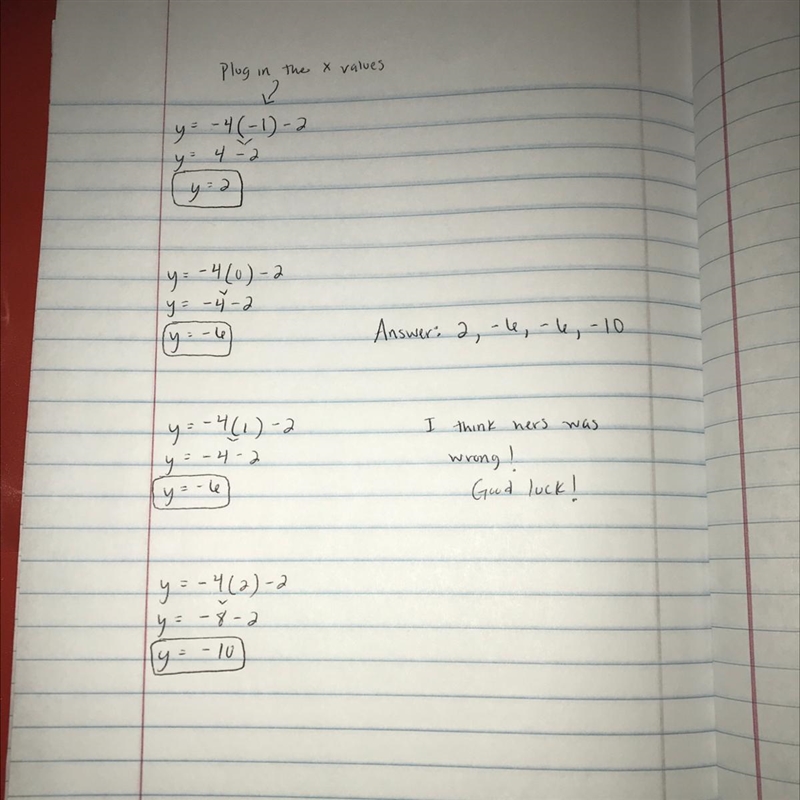 Plug in the x values
y = -4(-1)-2
y = 4-2
y = 2
y = -4(0)-2
y = -4-2
y = -6
Answer: 2, -6, -6, -10
y = -4(1)-2
y = -4-2
y = -6
I think hers was
wrong!
Good luck!
y = -4(2)-2
y = -8-2
y = -10